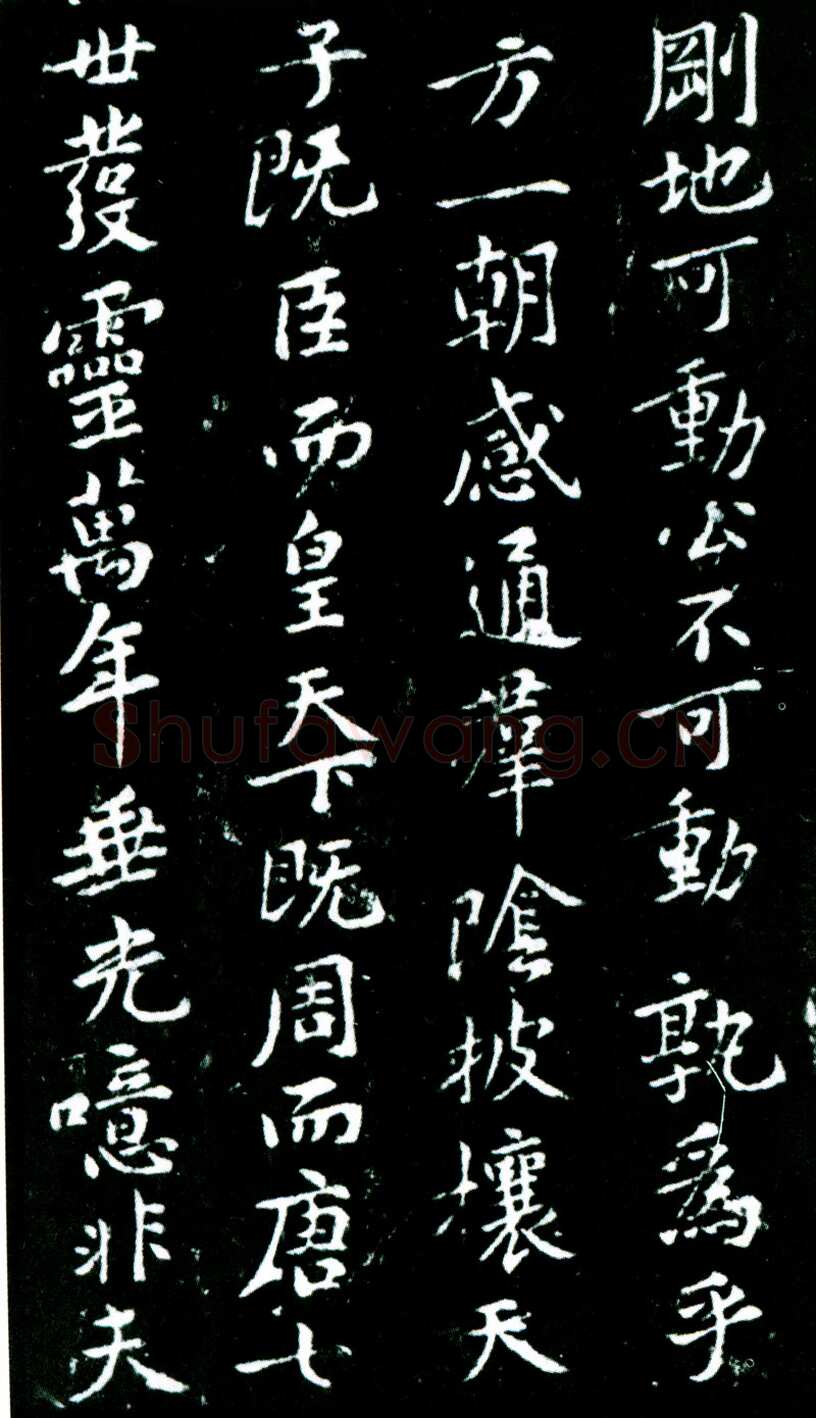 剛地可動公不可動孰爲乎
方一朝感通羣陰披攘天
子既臣而皇天下既周而唐七
世發靈萬年垂光噫非夫
Shufawang.CN